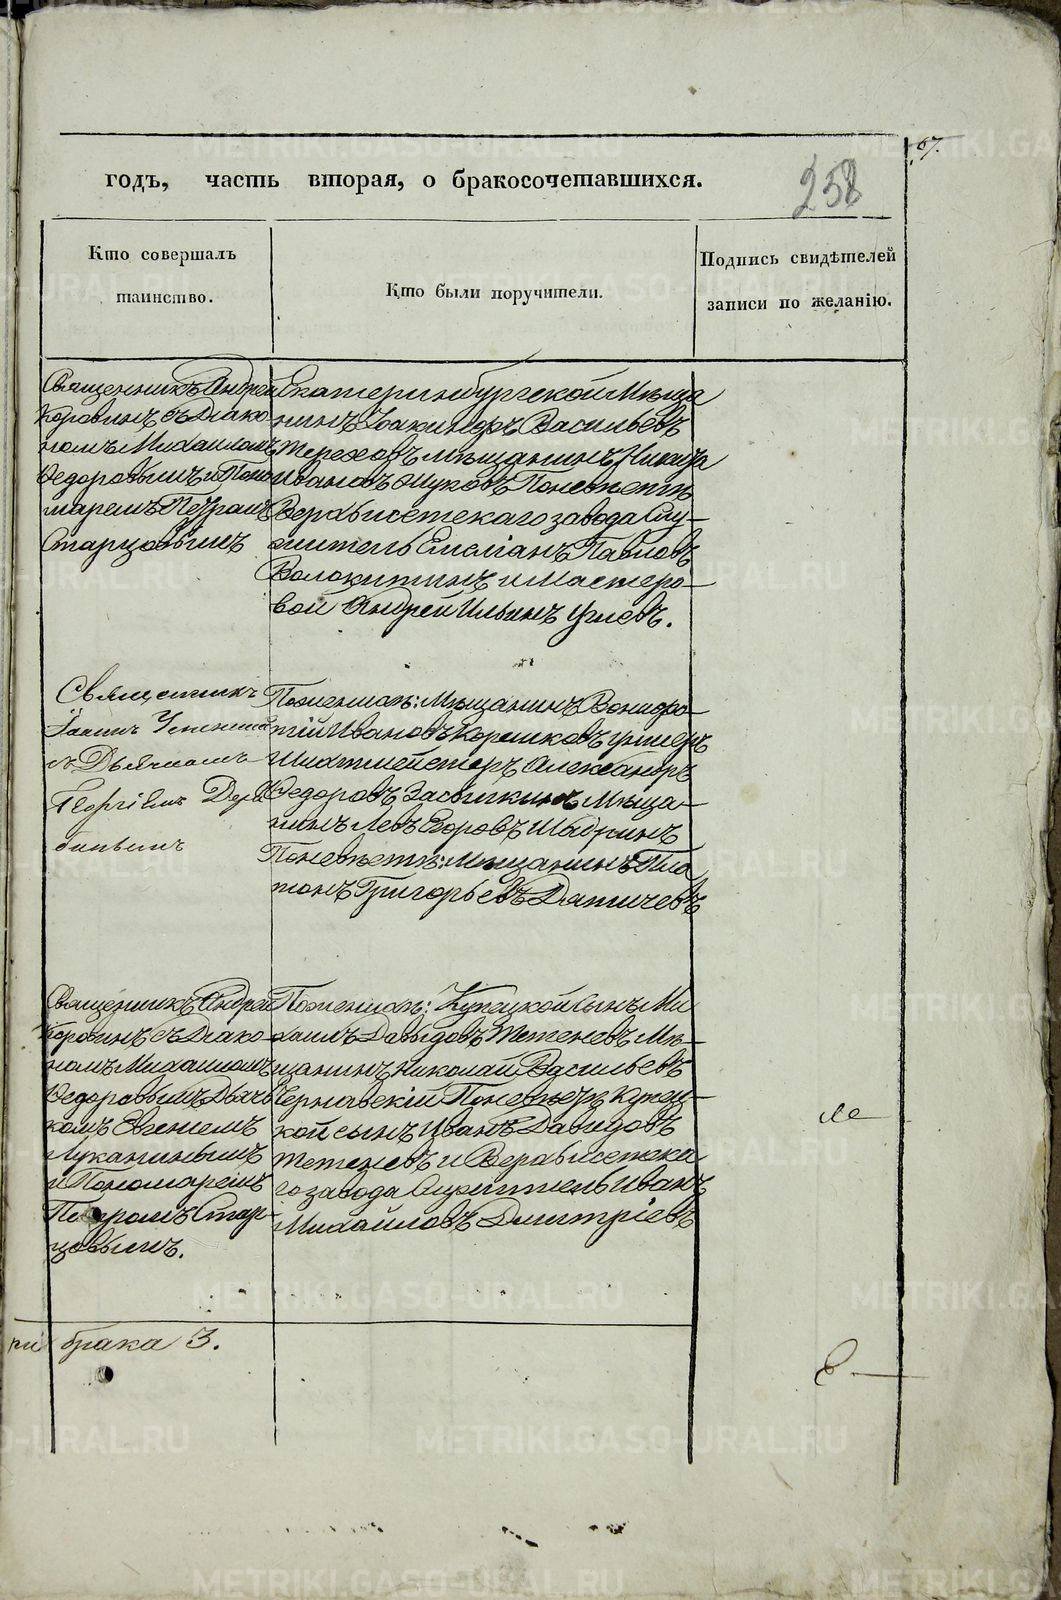 67.
годъ, часть вторая, о бракосочетавшихся.
258
Кто совершалъ
таинство.
Кто были поручители.
Подпись свидѣтелей
записи по желанію.
Священникъ Андрей
Коровинъ съ Діако
номъ Михаиломъ
Федоровымъ и Поно
маремъ Петромъ
Старцовымъ
Екатеринбургской Мѣща
нинъ Іоакинфъ Васильевъ
Тереховъ мѣщанинъ Никита
Ивановъ Жуковъ Поневѣстѣ
Верхъисетскаго завода Слу-
житель Емеліанъ Павловъ
Волокитинъ и Мастеро-
вой Андрей Ильинъ
Священникъ
Іоаннъ Успенскій
съ Дьячкомъ
Георгіемъ Деря
бинымъ
Поженихѣ: Мѣщанинъ Вонифа-
тій Ивановъ Корешковъ унтеръ
Шихтмейстеръ Александръ
Федоровъ Засыпкинъ Мѣща-
нинъ Левъ Егоровъ Шабринъ
Поневѣстѣ: Мѣщанинъ Пла
тонъ Григорьевъ
Священникъ Андрей
Коровинъ съ Діако
номъ Михаиломъ
Федоровымъ Дьяч
комъ Евгеніемъ
Луканинымъ
и Пономаремъ
Петромъ Стар-
цовымъ.
Поженихѣ: Купецкой сынъ Ми
хаилъ Давыдовъ Тетеневъ Мѣ-
щанинъ Николай Васильевъ
Чернавскій Поневѣстѣ Купец-
кой сынъ Иванъ Давидовъ
Тетеневъ и Верхъисетска
го завода Служитель Иванъ
Михайловъ Дмитріевъ
брака 3.